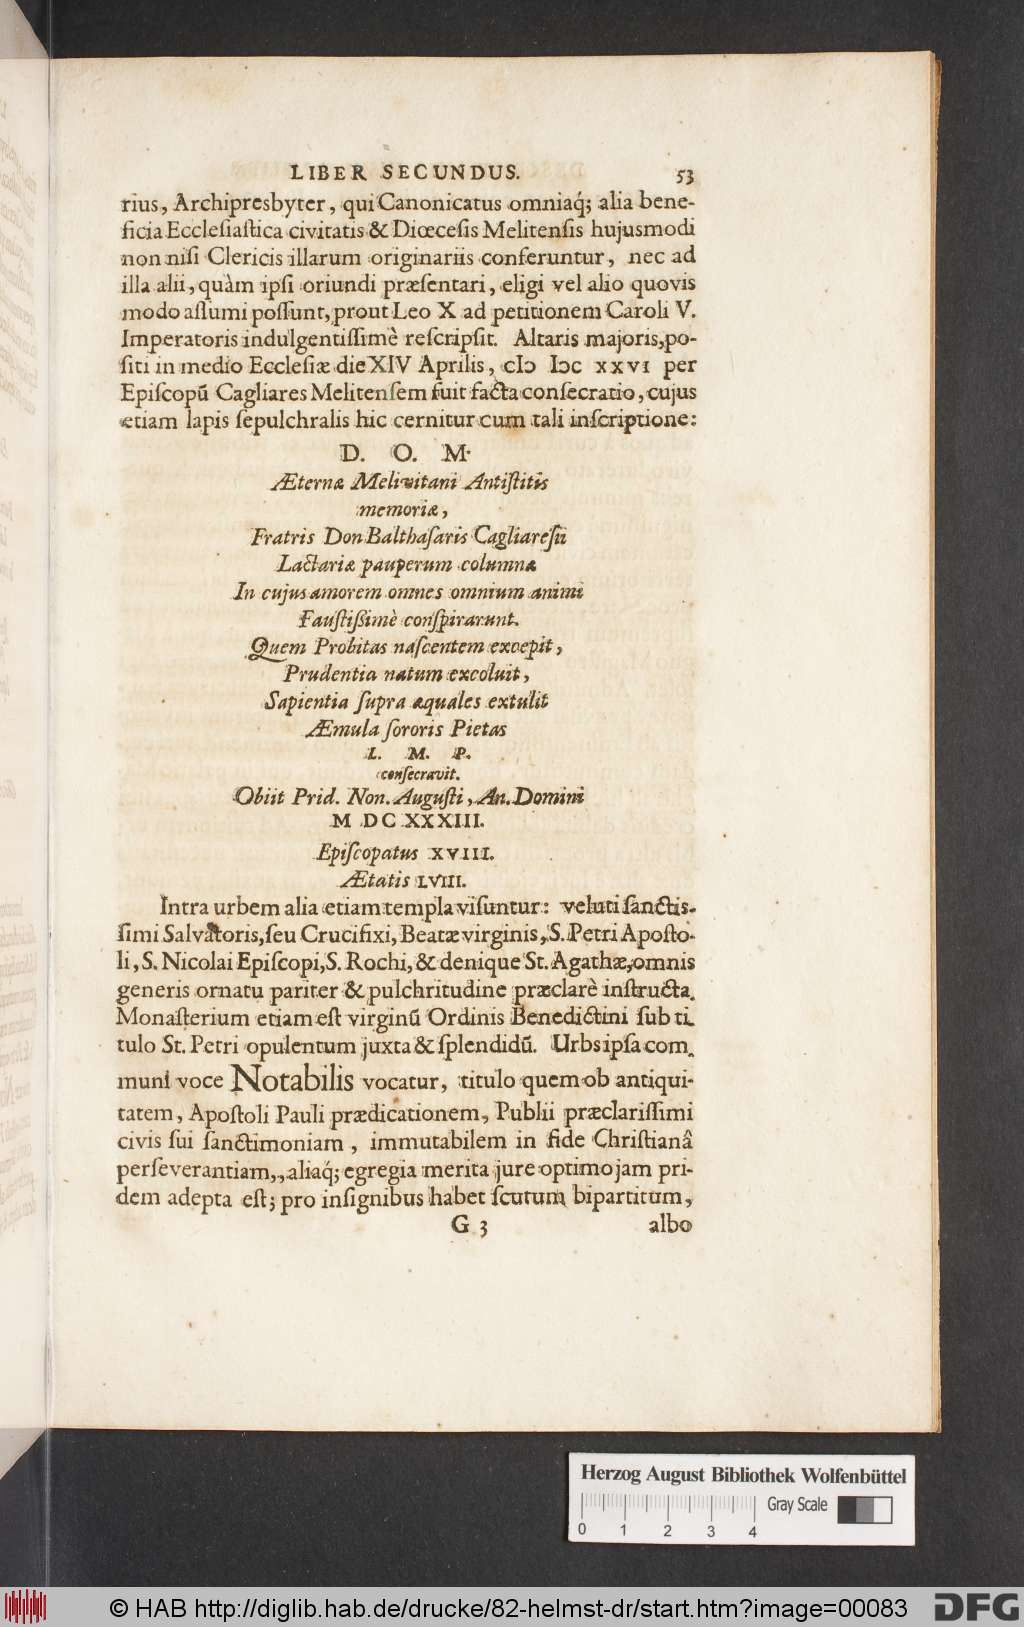 LIBER SECUNDUS. 53
rius, Archipresbyter, qui Canonicatus omniaq́; alia bene-
ficia Eccleſiaſtica civitatis & Diœceſis Melitenſis hujusmodi
non niſi Clericis illarum originariis conferuntur, nec ad
illa alii, quàm ipſi oriundi præſentari, eligi vel alio quovis
modo aſſumi poſſunt, prout Leo X ad petitionem Caroli V.
Imperatoris indulgentiſſimè reſcripſit. Altaris majoris, po-
ſiti in medio Eccleſiæ die XIV Aprilis, cIↄ Iↄc xxvi per
Epiſcopũ Cagliares Melitenſem fuit facta conſecratio, cujus
etiam lapis ſepulchralis hic cernitur cum tali inſcriptione:
D. O. M.
Æternæ Melivitani Antiſtitis
memoriæ,
Fratris Don Balthaſaris Cagliareſii
Lactariæ pauperum columnæ
In cujus amorem omnes omnium animi
Fauſtißimè conſpirarunt.
Quem Probitas naſcentem excepit,
Prudentia natum excoluit,
Sapientia ſupra æquales extulit
Æmula ſororis Pietas
L. M. P.
conſecravit.
Obiit Prid. Non. Auguſti, An. Domini
M DC XXXIII.
Epiſcopatus XVIII.
Ætatis LVIII.
Intra urbem alia etiam templa viſuntur: veluti ſanctis-
ſimi Salvatoris, ſeu Crucifixi, Beatæ virginis, S. Petri Apoſto-
li, S. Nicolai Epiſcopi, S. Rochi, & denique St. Agathæ, omnis
generis ornatu pariter & pulchritudine præclarè inſtructa.
Monaſterium etiam eſt virginũ Ordinis Benedictini ſub ti-
tulo St. Petri opulentum juxta & ſplendidũ. Urbs ipſa com-
muni voce Notabilis vocatur, titulo quem ob antiqui-
tatem, Apoſtoli Pauli prædicationem, Publii præclariſſimi
civis ſui ſanctimoniam, immutabilem in fide Chriſtianâ
perſeverantiam,, aliaq́; egregia merita jure optimo jam pri-
dem adepta eſt; pro inſignibus habet ſcutum bipartitum,
G 3 albo
Herzog August Bibliothek Wolfenbüttel
Gray Scale
0 1 2 3 4
© HAB http://diglib.hab.de/drucke/82-helmst-dr/start.htm?image=00083
DFG